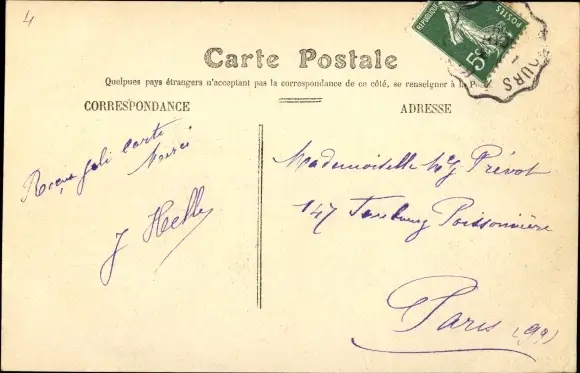 4
RÉPUBLIQUE
POSTES
5
OURS
Carte Postale
Quelques pays étrangers n'acceptant pas la correspondance de ce côté, se renseigner à la Poste
CORRESPONDANCE
ADRESSE
Reçu joli carte
Merci
J Helle
Mademoiselle Mg Prévot
147 Faubourg Poissonnière
Paris (9e)